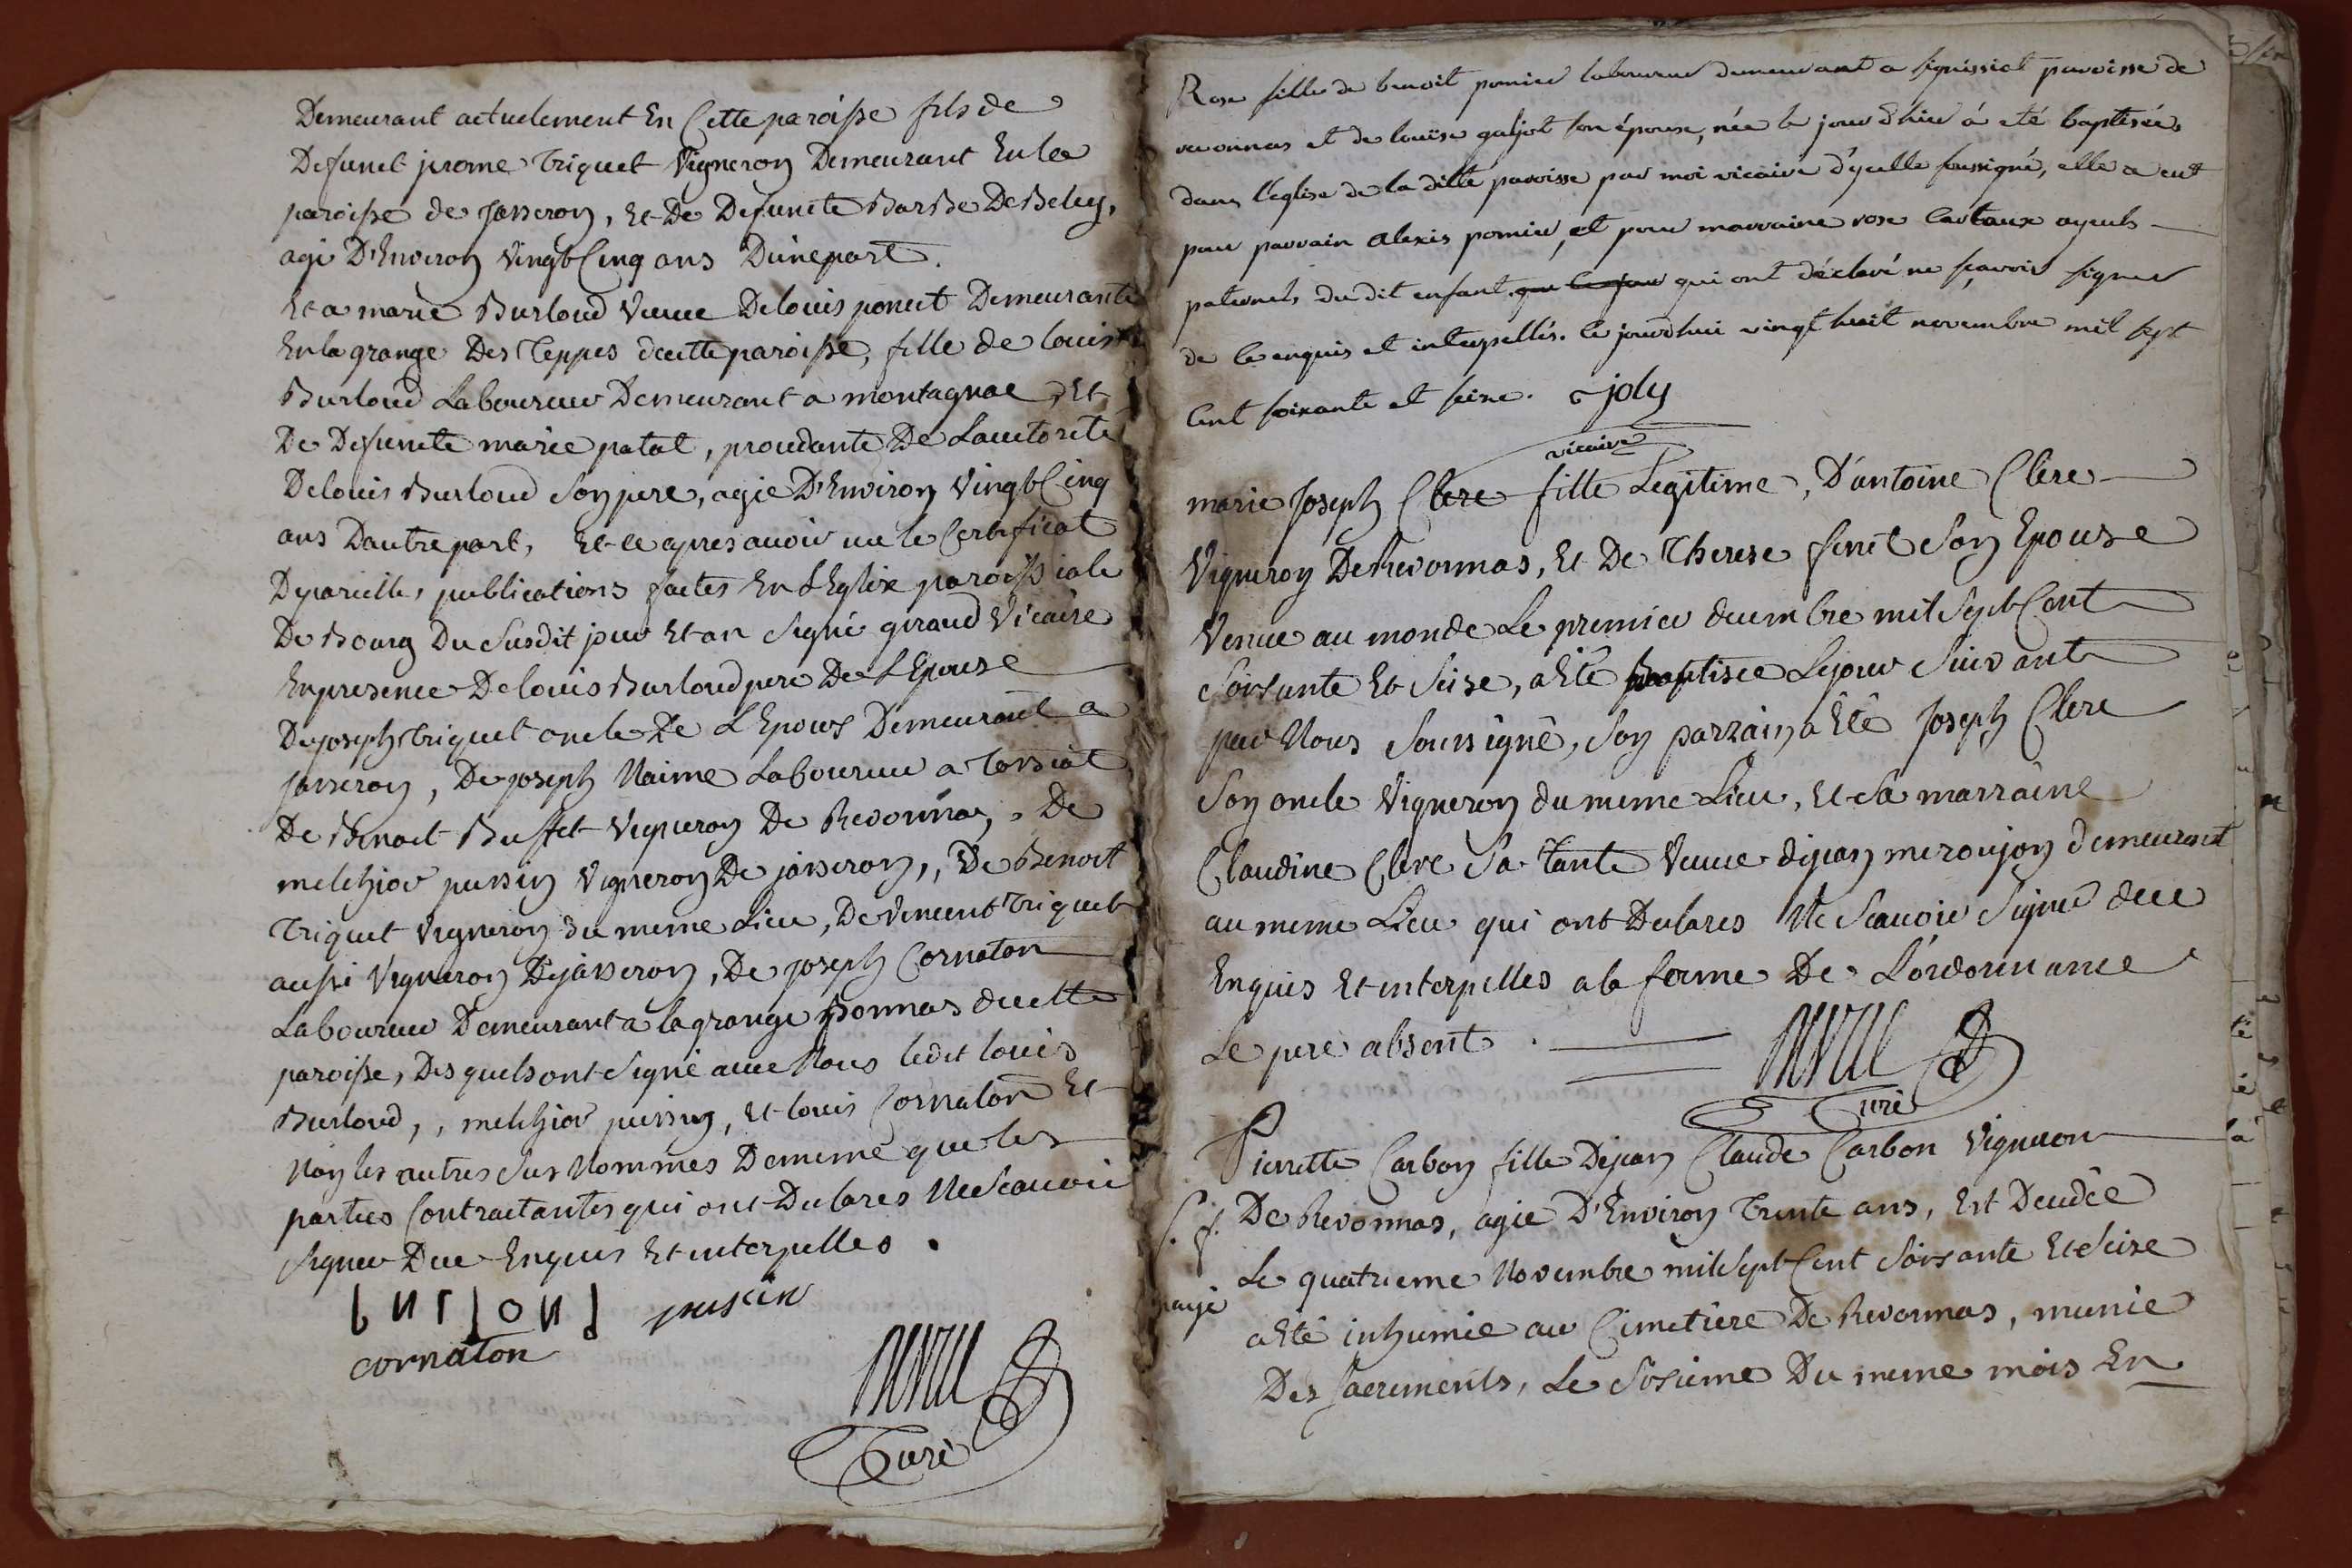 Demeurant actuelement En Cette paroisse fils de
Defunct jerome Triquet Vigneron Demeurant En la
paroisse de Jasseron, Et De Defuncte BarBe DeBeley,
agé D'Environ VingtCinq ans D'unepart.
Et a marie Burloud Veuve Delouis ponat Demeurante
En la grange Des Teppes decette paroisse, fille de louis
Burloud Laboureur Demeurant a montagnac, Et
De Defuncte marie patat, procedante De Lauctorité
Delouis Burloud Son pere, agée D'Environ VingtCinq
ans Dautre part, Et ce apres avoir vu le Certificat
Depareilles publications faites En L'Eglise paroissiale
De Bourg Du Susdit jour Et an Signé giraud Vicaire
Enpresence Delouis Burloud pere De L'Epouse
Dejoseph triquet oncle De L'Epoux Demeurant a
jasseron, De joseph Naime Laboureur a torssiat
De Benoit Buffet Vigneron De Revonnas, De
melchior pussin Vigneron De jasseron,, De Benoit
Triquet Vigneron du meme Lieu, De Vincent Triquet
aussi Vigneron Dejasseron, De joseph Cornaton
Laboureur Demeurant a la grange Bonnas decette
paroisse, Des quels ont Signé avec Nous ledit louis
Burloud,, melchior pussin, Et louis Cornaton Et
Non les autres Sus Nommés Dememe que les
parties Contractantes qui ont Declarés NeScavoir
Signer Dece Enquis Et interpellés.
burloud pussin
cornaton
Curé
Rose fille de benoit pornier laboureur demeurant a signissiat paroisse de
revonnas et de louïse galjot son épouse, née le jour d'hier á eté baptisée
dans l'église de la ditte paroisse par moi vicaire d'ycelle soussigné, elle a eut
pour parrain alexis pornier, et pour marraine rose Cartaux ayeuls
paternels du dit enfant qui ont déclaré ne sçavoir signer
de ce enquis et interpellés. ce jourdhui vingt huit novembre mil sept
Cent soixante et seize. joly
vicaire
marie Joseph Clere fille Legitime, D'antoine Clere
Vigneron DeRevonnas, Et De Therese feret Son Epouse
Venue au monde Le premier decembre mil Sept Cent
Soixante Et Seize, a Eté baptisée Lejour Suivant
par Nous Soussigné, Son parrain a Eté Joseph Clere
Son oncle Vigneron du meme Lieu, Et Sa marraine
Claudine Clere Sa Tante Veuve dejean meroujon demeurant
au meme Lieu qui ont Declarés Ne Scavoir Signer dece
Enquis Et interpellés a la forme De L'ordonnance
Le pere absent.
Curé
Pierrette Carbon fille Dejean Claude Carbon Vigneron
De Revonnas, agée D'Environ Trente ans, Est Decedée
Le quatrieme Novembre mil Sept Cent Soixante Et Seize
a Eté inhumée au Cimetiere De Revonnas, munie
Des Sacrements, Le Sixieme Du meme mois En